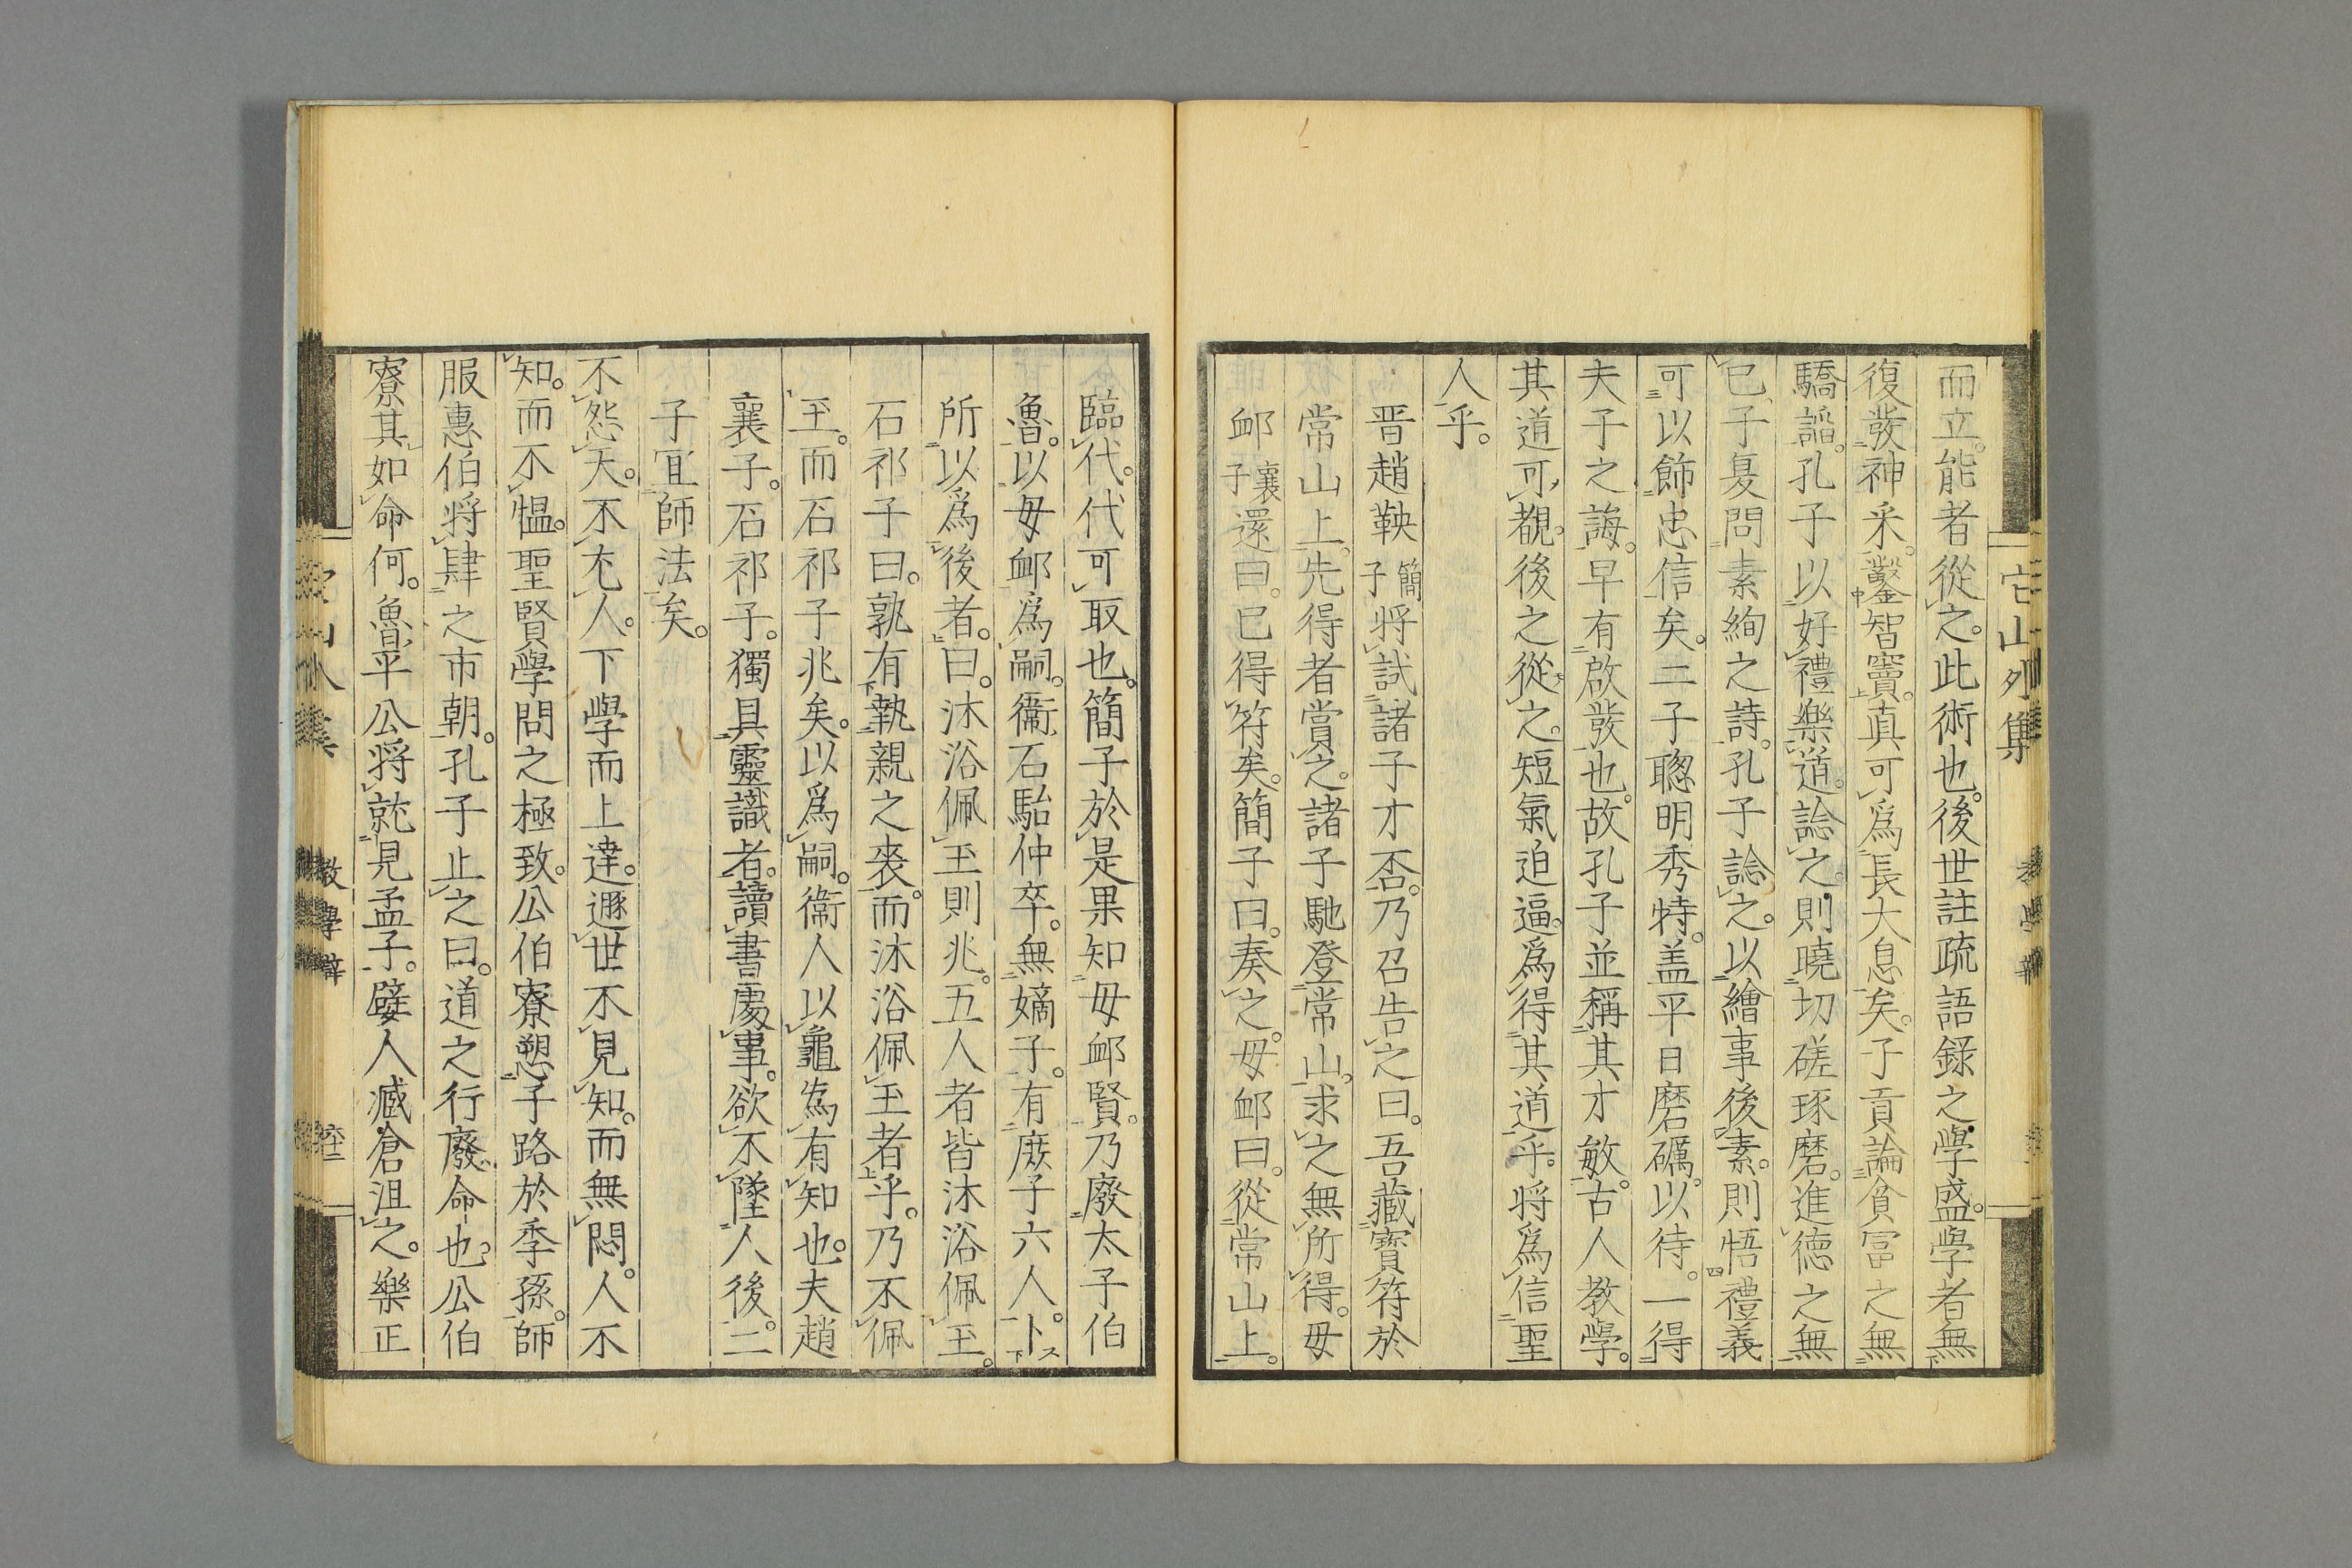 而立。能者從之。此術也。後世註疏語錄之學盛。學者無
復發神釆。鑿智竇。眞可爲長大息矣。子貢論貧富之無
驕諂。孔子以好禮樂道。論之。則曉切磋琢磨。進德之無
已。子夏問素絢之詩。孔子論之。以繪事後素。則悟禮義
可以飾忠信矣。二子聰明秀特。盖平日磨礪。以待。一得
夫子之誨。早有啟發也。故孔子並稱其才敏。古人教學。
其道可觀。後之從之。短氣迫逼。爲得其道乎。将爲信聖
人乎。
晋趙鞅簡子将試諸子才否。乃召告之曰。吾藏寶符於
常山上。先得者賞之。諸子馳登常山。求之無所得。毋
卹襄子還曰。已得符矣。簡子曰。奏之。毋卹曰。從常山上。
臨代。代可取也。簡子於是果知毋卹賢。乃廢太子伯
魯。以毋卹爲嗣。衞石駘仲卒。無嫡子。有庶子六人。卜
所以爲後者。曰。沐浴佩玉則兆。五人者皆沐浴佩玉。
石祁子曰。孰有執親之喪。而沐浴佩玉者乎。乃不佩
玉。而石祁子兆矣。以爲嗣。衞人以龜爲有知也。夫趙
襄子。石祁子。獨具靈識者。讀書處事。欲不墜人後。二
子冝師法矣。
不怨天。不尤人。下學而上達。遯世不見知。而無悶。人不
知。而不慍。聖賢學問之極致。公伯寮愬子路於季孫。師
服惠伯將肆之市朝。孔子止之曰。道之行廢。命也。公伯
寮其如命何。魯平公将就見孟子。嬖人臧倉沮之。樂正
它山外集
教學辨